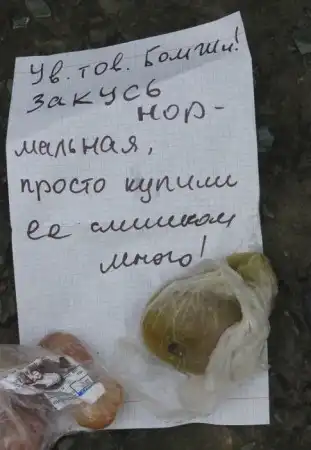 Ув. тов. Бомжи!
Закусь
нор-
мальная,
просто купили
ее слишком
много!